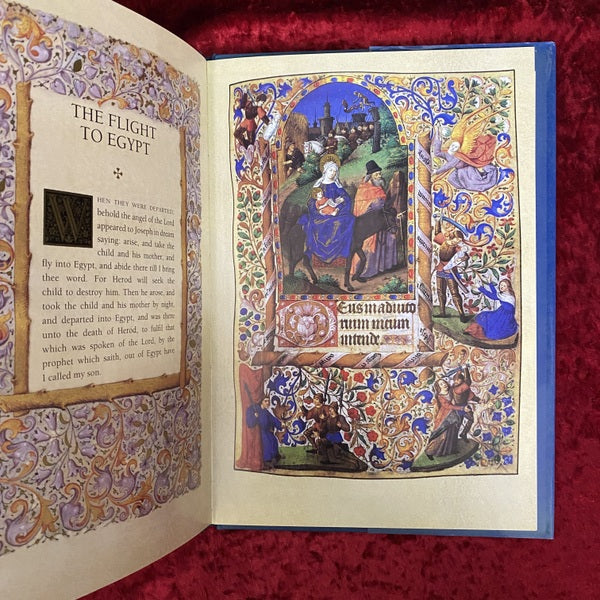 THE FLIGHT
TO EGYPT
WHEN THEY WERE DEPARTED,
behold the angel of the Lord
appeared to Joseph in dream
saying: arise, and take the
child and his mother, and
fly into Egypt, and abide there till I bring
thee word. For Herod will seek the
child to destroy him. Then he arose, and
took the child and his mother by night,
and departed into Egypt, and was there
unto the death of Herod, to fulfil that
which was spoken of the Lord, by the
prophet which saith, out of Egypt have
I called my son.
Deus in adiuto
rium meum
intende.